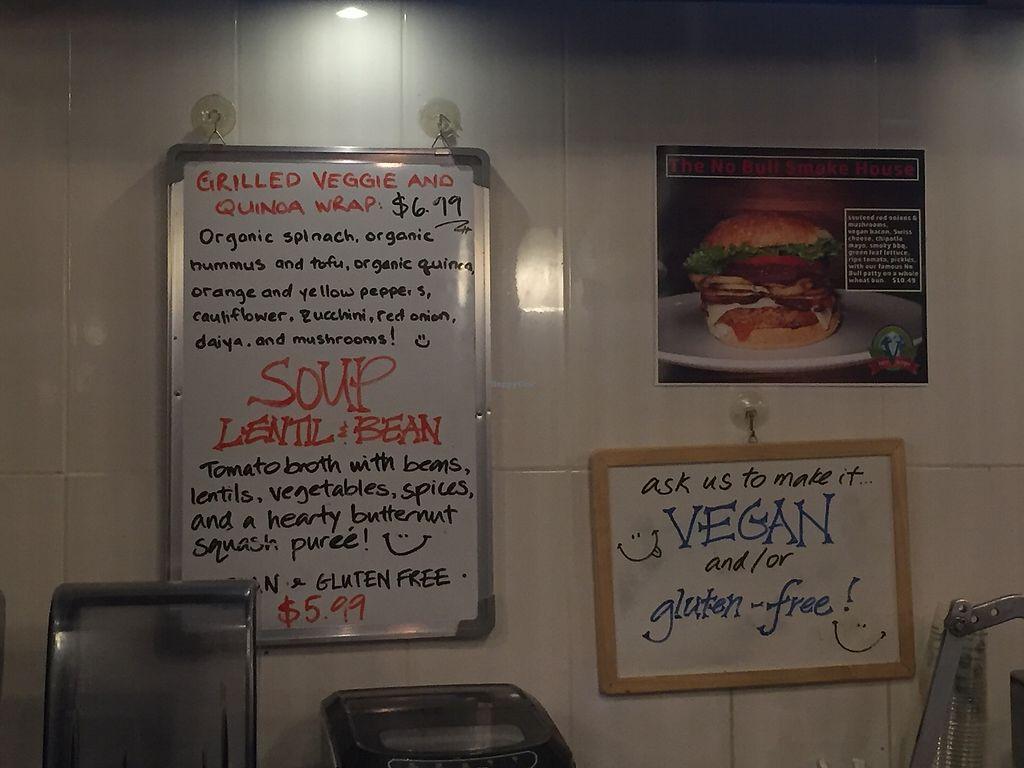 GRILLED VEGGIE AND
QUINOA WRAP: $6.99
Organic spinach, organic
hummus and tofu, organic quinoa,
orange and yellow peppers,
cauliflower, zucchini, red onion,
daiya, and mushrooms!
SOUP
LENTIL & BEAN
Tomato broth with beans,
lentils, vegetables, spices,
and a hearty butternut
squash pureé!
N & GLUTEN FREE ·
$5.99
The No Bull Smoke House
sauteed red onions &
mushrooms,
vegan bacon, Swiss
cheese, chipotle
mayo, smoky bbq,
green leaf lettuce,
ripe tomato, pickles,
with our famous No
Bull patty on a whole
wheat bun. $10.49
ask us to make it...
VEGAN
and/or
gluten-free!
HappyCow